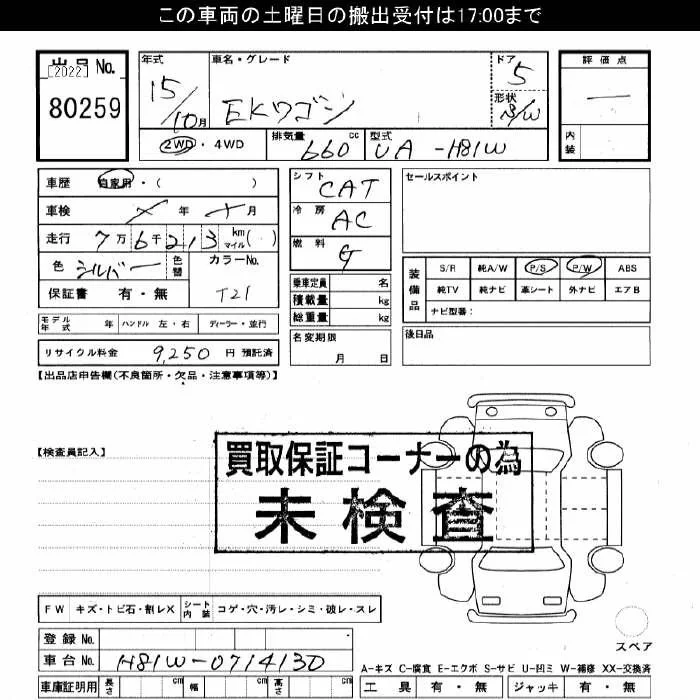 この車両の土曜日の搬出受付は17:00まで
出品 No.
[2022]
80259
年式
15/10月
車名・グレード
EKワゴン
ドア
5
形状
評価点
―
内装
2WD・4WD
排気量
660 cc
型式
UA-H81W
車歴 自家用・( )
車検 × 年 × 月
走行 7万6千213 km マイル( )
色 シルバー 色替
カラーNo.
T21
保証書 有・無
シフト
CAT
冷房
AC
燃料
G
乗車定員 名
積載量 kg
総重量 kg
セールスポイント
装備品
S/R 純A/W P/S P/W ABS
純TV 純ナビ 革シート 外ナビ エアB
ナビ型番:
モデル年式 年 ハンドル 左・右 ディーラー・並行
名変期限
月 日
後日品
リサイクル料金 9,250 円 預託済
【出品店申告欄(不良箇所・欠品・注意事項等)】
【検査員記入】
買取保証コーナーの為
未検査
FW キズ・トビ石・割レX シート内装 コゲ・穴・汚レ・シミ・破レ・スレ
スペア
登録 No.
車台 No. H81W-0714130
A-キズ C-腐食 E-エクボ S-サビ U-凹ミ W-補修 XX-交換済
車庫証明用 長さ cm 幅 cm 高さ cm
工具 有・無 ジャッキ 有・無